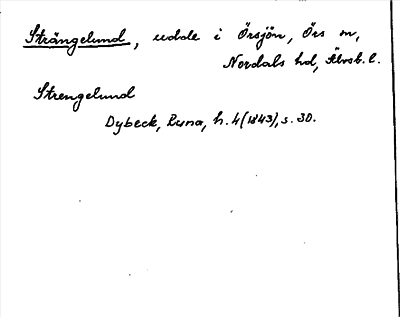 Strängelund, udde i Örsjön, Örs sn,
Nordals hd, Älvsb. l.
Strengelund
Dybeck, Runa, h. 4 (1843), s. 30.